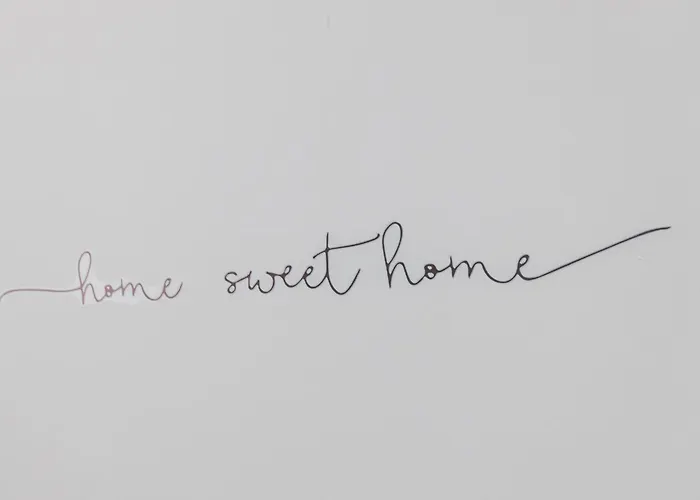 home sweet home